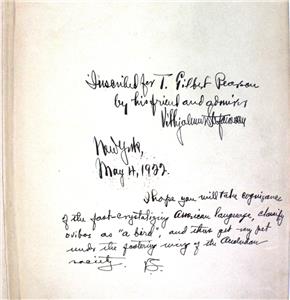 Inscribed for T. Gilbert Pearson
by his friend and admirer
Vilhjalmur Stefansson
New York,
May 4, 1922.
I hope you will take cognizance
of the fast-crystalizing American language, classify
ovibos as "a bird", and thus get my pet
under the fostering wing of the Audubon
society.